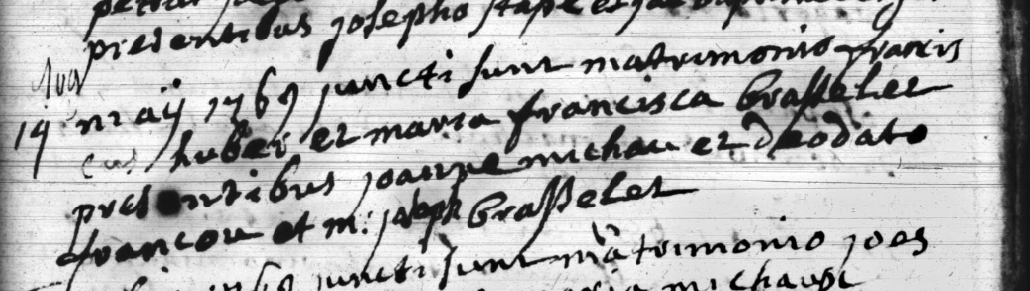 presentibus josepho
19 maij 1769 juncti sunt matrimonio francis
cus huber et maria francisca brasseler
presentibus joanne michau et deodato
francou et m: joseph brasseler
1769 juncti sunt matrimonio joes
michaux